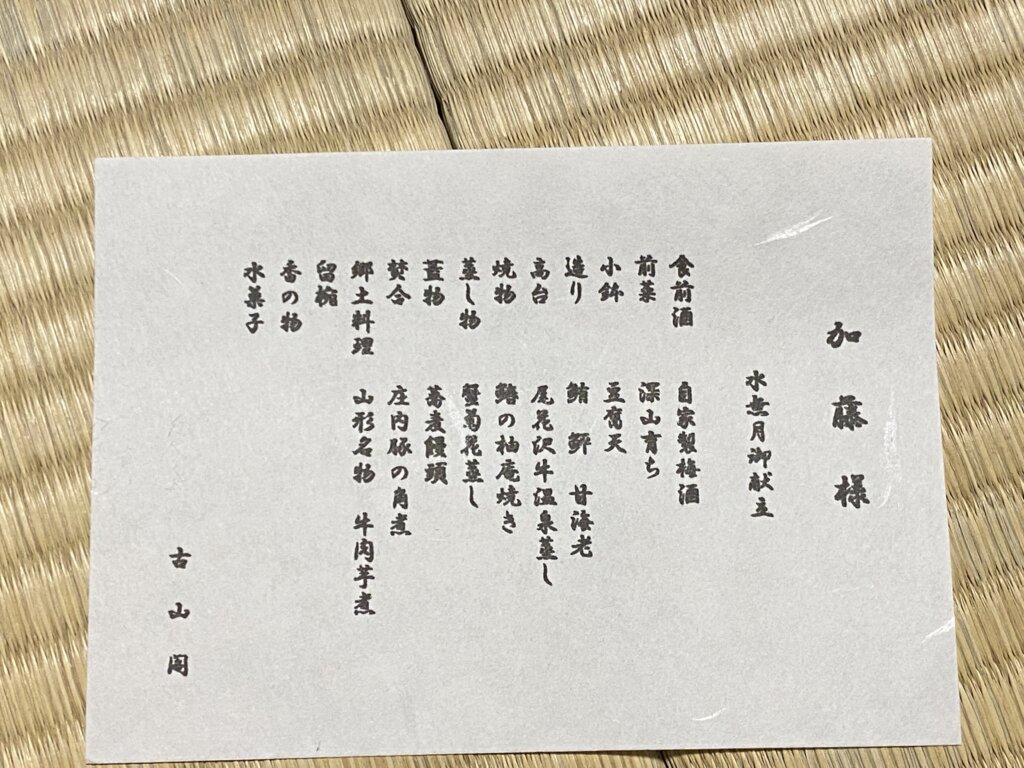 加藤様
水無月御献立
食前酒 自家製梅酒
前菜 深山育ち
小鉢 豆腐天
造り 鮪 鮃 甘海老
高台 尾花沢牛温泉蒸し
焼物 鰆の柚庵焼き
蒸し物 蟹菊花蒸し
蓋物 蕎麦饅頭
焚合 庄内豚の角煮
郷土料理 山形名物 牛肉芋煮
留椀
香の物
水菓子
古山閣